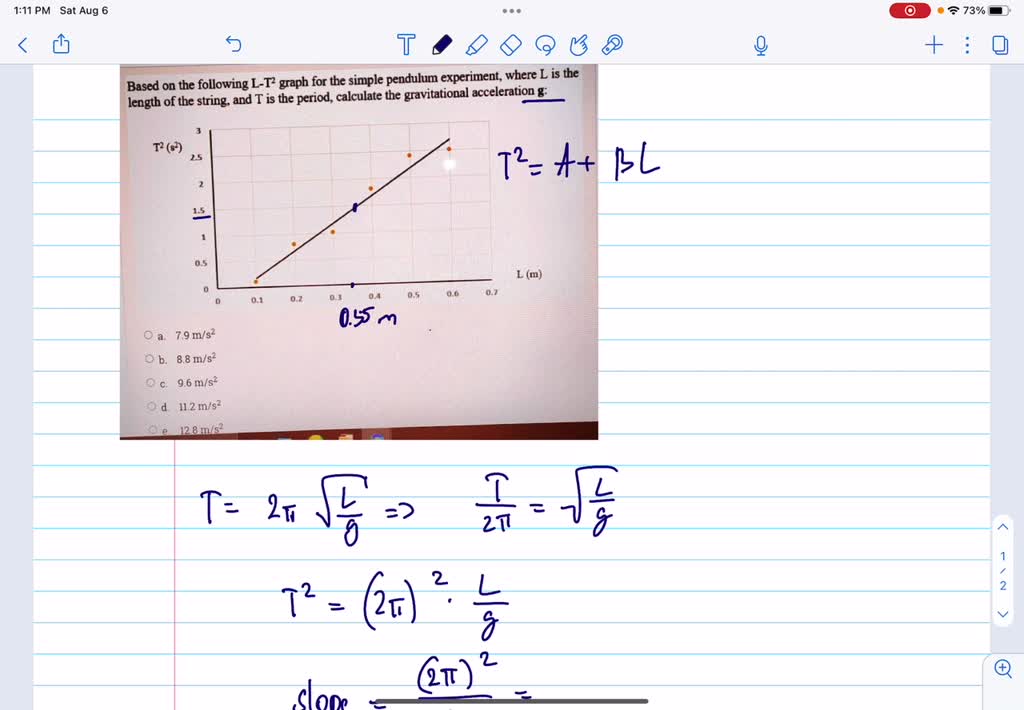 1:11 PM Sat Aug 6
73%
Based on the following L-T² graph for the simple pendulum experiment, where L is the
length of the string, and T is the period, calculate the gravitational acceleration g:
T² (s²)
3
2.5
2
1.5
1
0.5
0
0 0.1 0.2 0.3 0.4 0.5 0.6 0.7
L (m)
T² = A + BL
0.55 m
a. 7.9 m/s²
b. 8.8 m/s²
c. 9.6 m/s²
d. 11.2 m/s²
e. 12.8 m/s²
T = 2π √(L/g) => T/2π = √(L/g)
T² = (2π)² · L/g
slope = (2π)² =
1
/
2